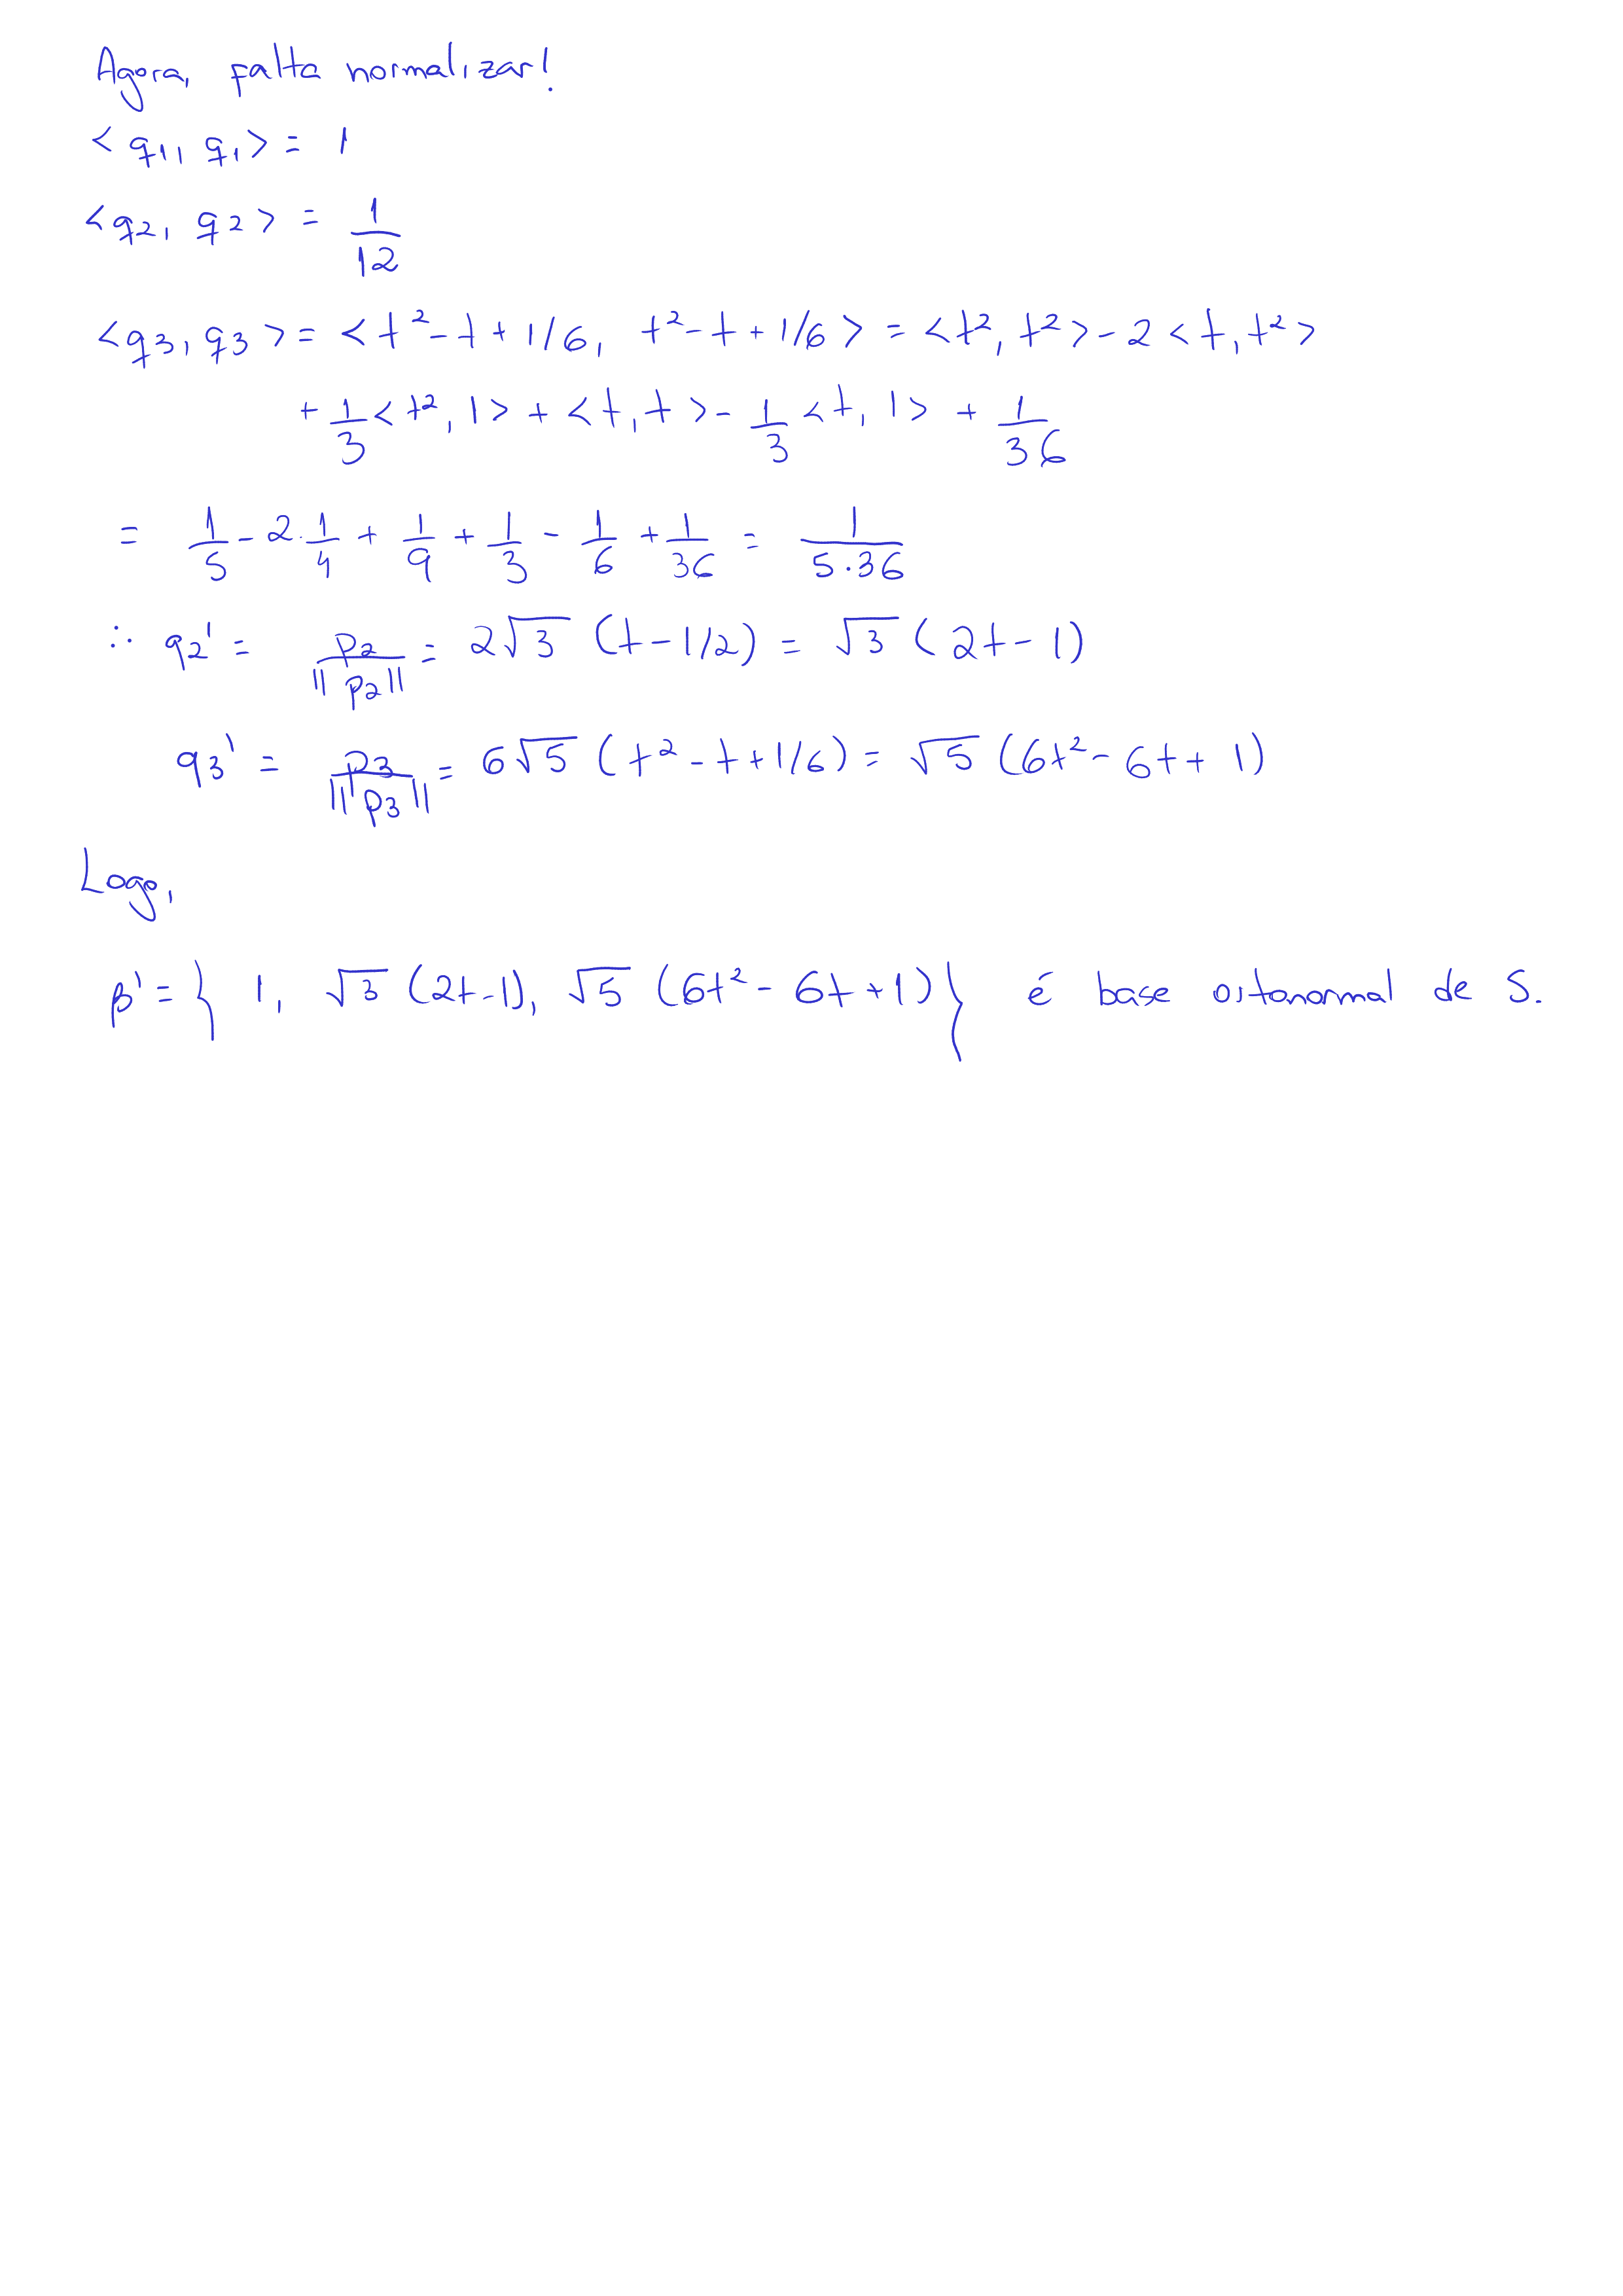 Agora, falta normalizar!
<q1, q1> = 1
<q2, q2> = 1/12
<q3, q3> = <t² - t + 1/6, t² - t + 1/6> = <t², t²> - 2<t, t²>
+ 1/3 <t², 1> + <t, t> - 1/3 <t, 1> + 1/36
= 1/5 - 2·1/4 + 1/9 + 1/3 - 1/6 + 1/36 = 1/(5·36)
∴ q2' = p2/||p2|| = 2√3 (t - 1/2) = √3 (2t - 1)
q3' = p3/||p3|| = 6√5 (t² - t + 1/6) = √5 (6t² - 6t + 1)
Logo,
β' = { 1, √3 (2t - 1), √5 (6t² - 6t + 1) } é base ortonormal de S.